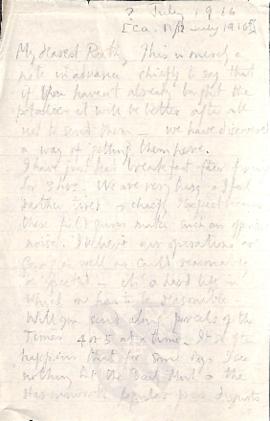 ? July 1916
[ca. July 1916]
My dearest Ruth, This is merely a
note in advance chiefly to say that
if you haven't already bought the
potatoes it will be better after all
not to send them — we have discovered
a way of getting them here.
I have just had breakfast after
for 3 hrs. We are very busy &
rather tired — chiefly I suspect because
these field guns make such an
noise. our operations are
going as well as could reasonably
be expected — it's a hard life in
which one has to be reasonable.
Will you send along parcels of the
Times 4 or 5 at a time. It so often
happens that for some days I see
nothing but the Daily Mail & the